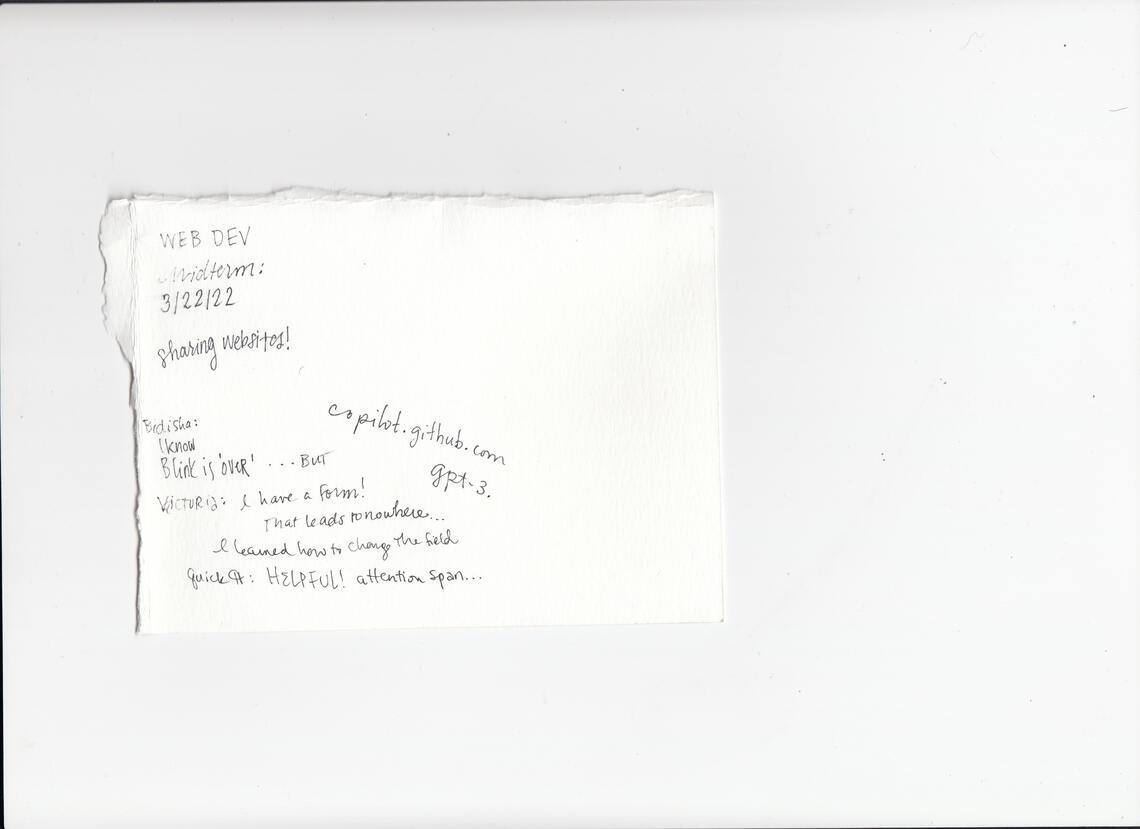 WEB DEV
Midterm:
3/22/22
sharing websites!
copilot.github.com
gpt-3.
Bidisha:
I know
Blink is 'over' ... But
Victoria: I have a form!
That leads to nowhere...
I learned how to change the field
HELPFUL! attention span...